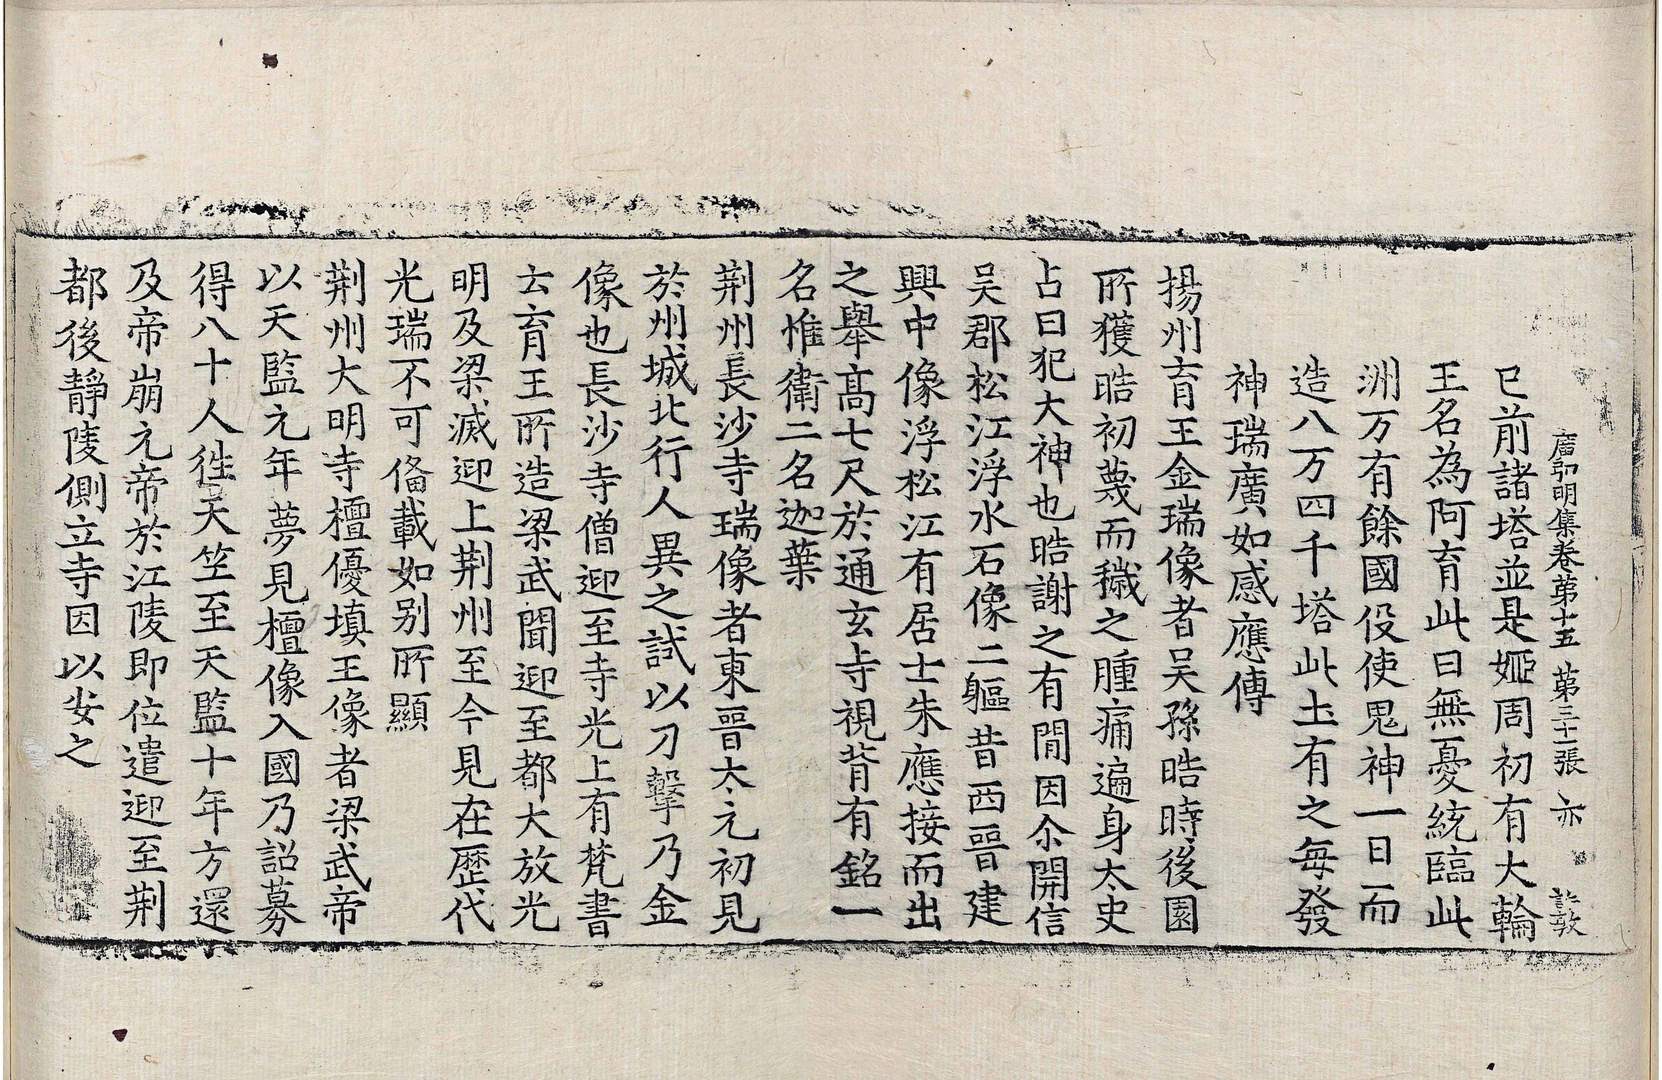 廣弘明集卷苐十五　苐三十一張　亦　敦
已前諸塔並是姬周初有大輪
王名為阿育此曰無憂統臨此
洲万有餘國役使鬼神一日而
造八万四千塔此土有之每發
神瑞廣如感應傳
揚州育王金瑞像者吴孫皓時後園
所獲皓初薎而穢之腫痛遍身太史
占曰犯大神也皓謝之有閒因尒開信
吴郡松江浮水石像二軀昔西晉建
興中像浮松江有居士朱應接而出
之舉髙七尺於通玄寺視背有銘一
名惟衛二名迦葉
荆州長沙寺瑞像者東晉太元初見
於州城北行人異之試以刀擊乃金
像也長沙寺僧迎至寺光上有梵書
云育王所造梁武聞迎至都大放光
明及梁滅迎上荆州至今見在歴代
光瑞不可俻載如别所顯
荆州大明寺檀優填王像者梁武帝
以天監元年夢見檀像入國乃詔募
得八十人徃天竺至天監十年方還
及帝崩元帝於江陵即位遣迎至荆
都後静陵側立寺因以安之